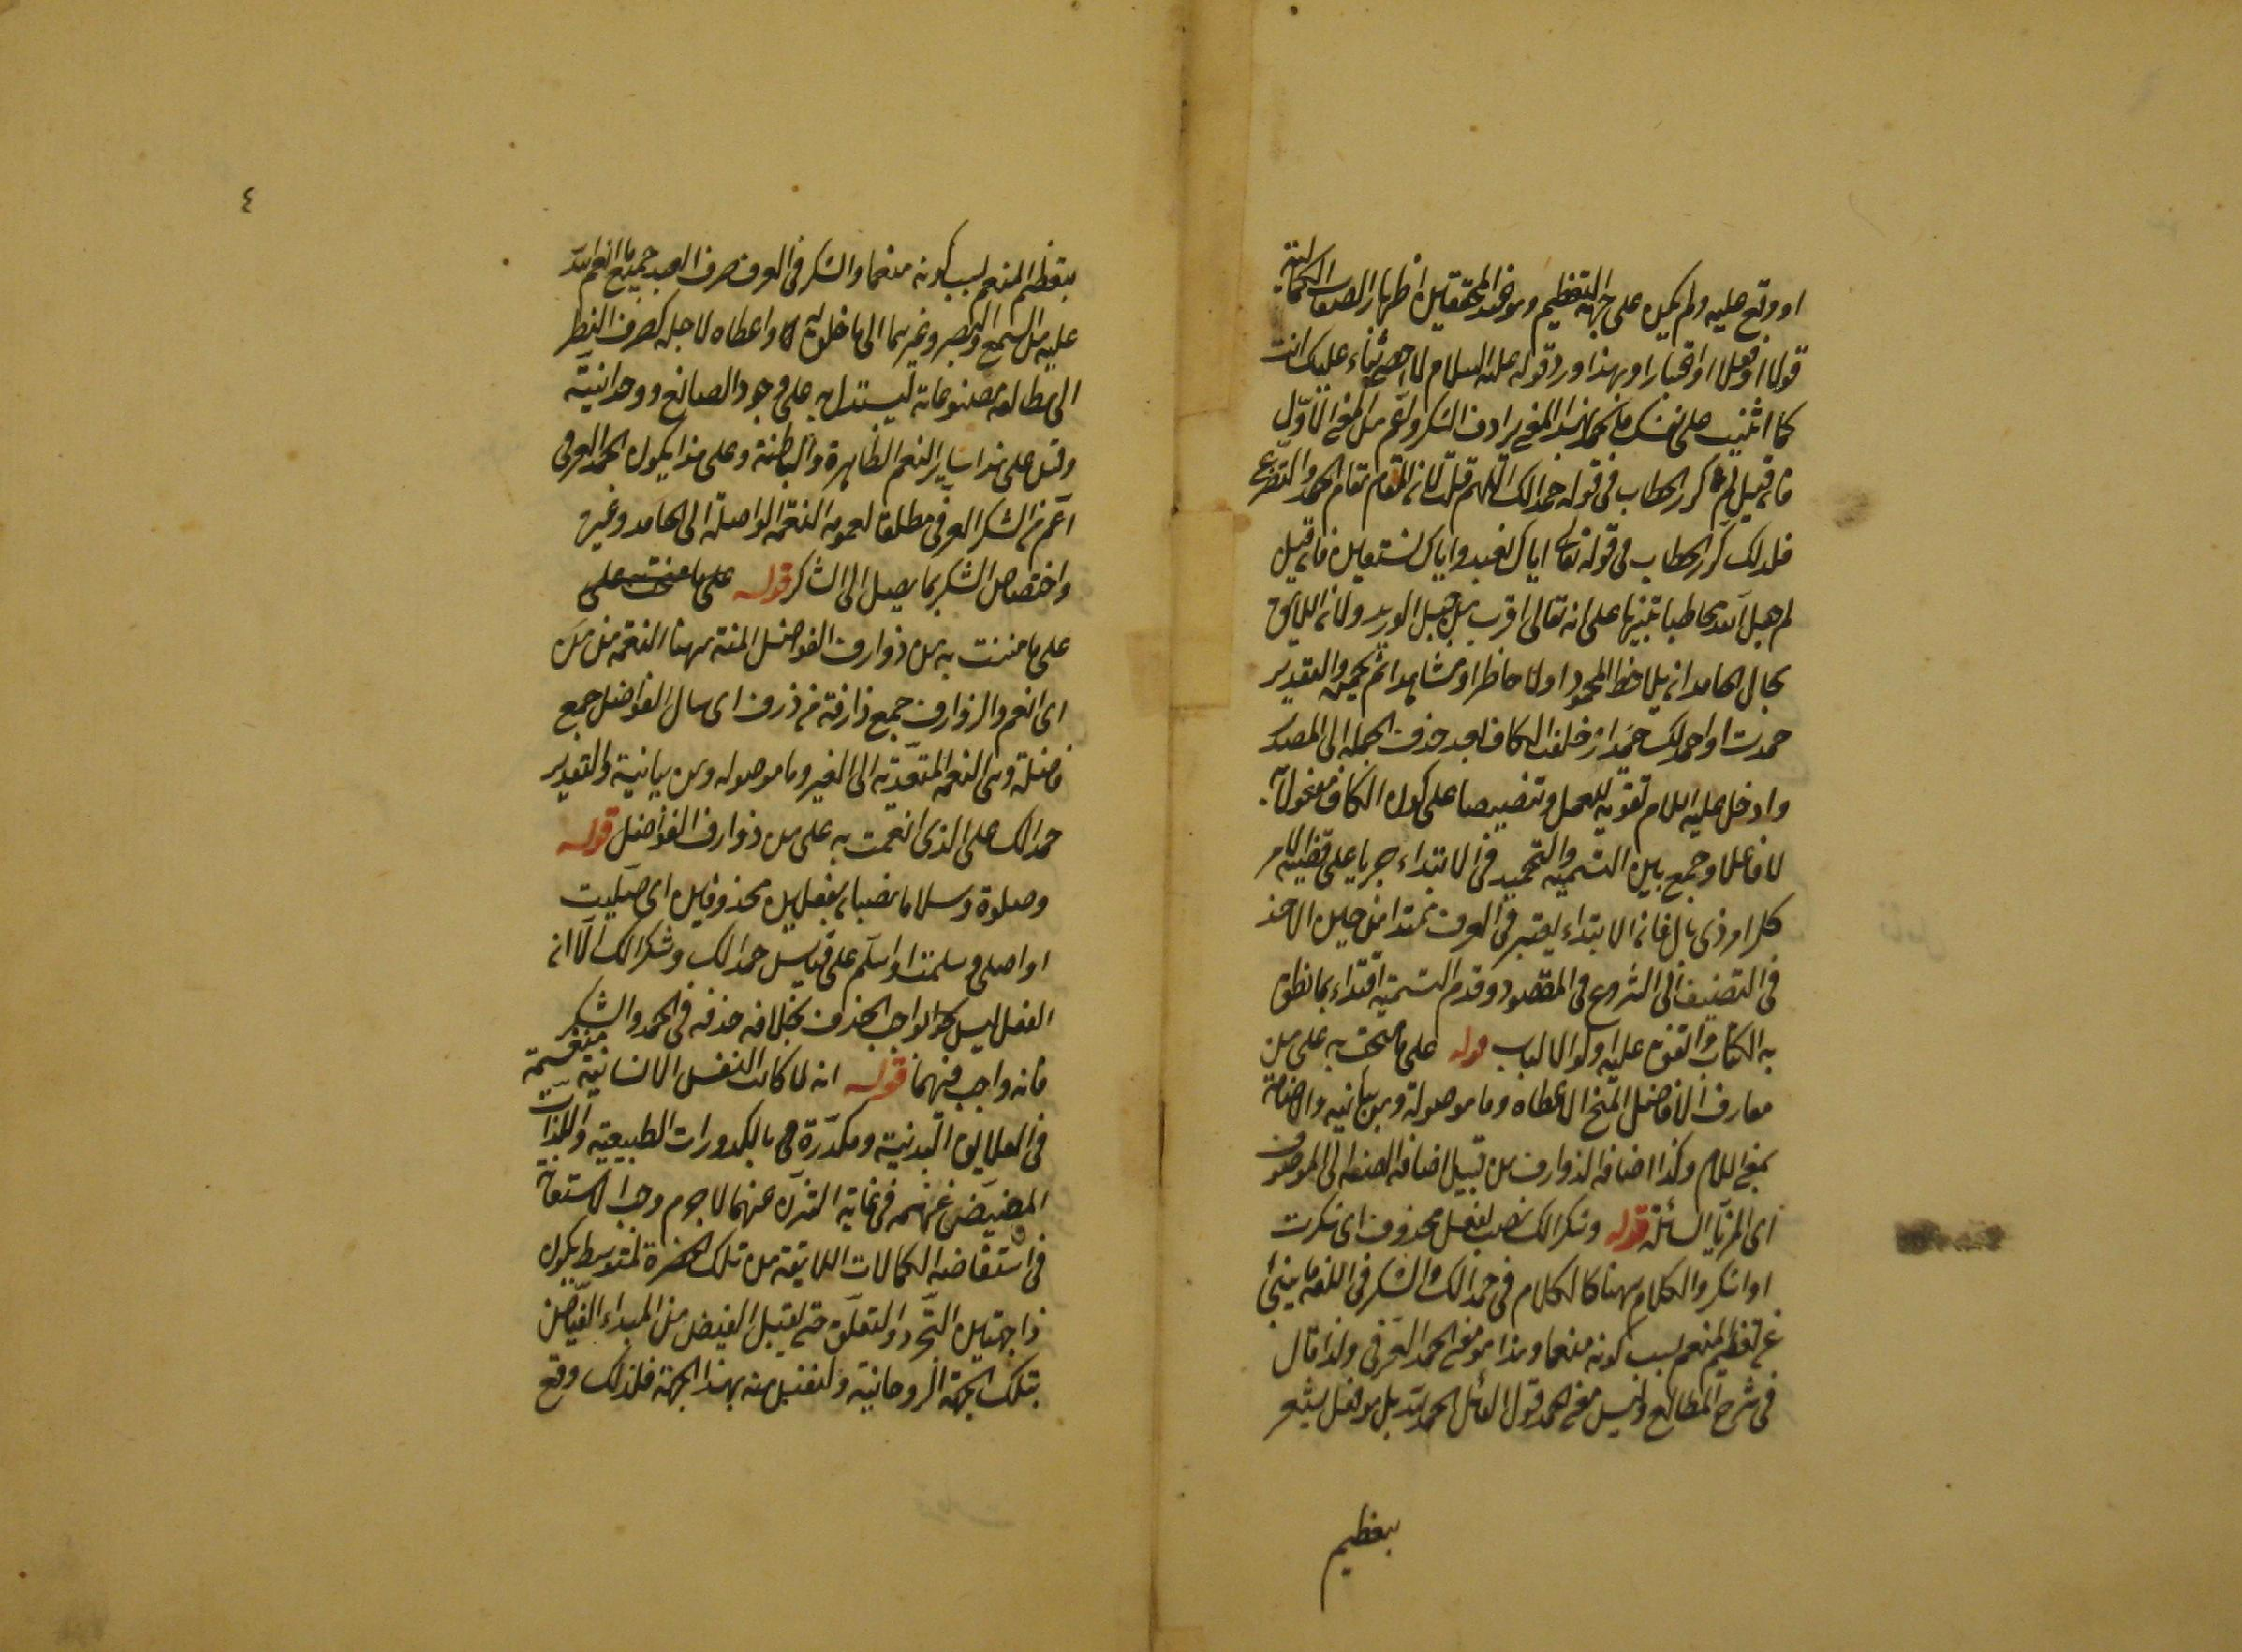 او وقع عليه ولم يكن على جهة التعظيم وهو عند المحققين اظهار الصفات الكمالية
قولا او فعلا او اقتبارا وبهذا ورد قوله عليه السلام لا احصى ثناء عليك انت
كما اثنيت على نفسك فالحمد بهذا المعنى يرادف الشكر واعم من المعنى الاول
فان قيل لم كرر الخطاب فى قوله حمدا لك اللهم قلت لان المقام مقام الحمد والتضرع
فلذلك كرر الخطاب فى قوله تعالى اياك نعبد واياك نستعين فان قيل
لم جعل الله مخاطبا تنبيها على انه تعالى اقرب من حبل الوريد ولان اللايق
بحال الحامد ان يلاحظ المحمود اولا حاضرا ومشاهدا ثم يحمده والتقدير
حمدت او احمدك حمدا ثم خلفت الكاف بعد حذف الجملة الى المصدر
وادخل عليه اللام تقوية للعمل وتنصيصا على كون الكاف مفعولا
لا فاعلا وجمع بين التسمية والتحميد فى الابتداء جريا على قضية الامر
كل امر ذى بال فان الابتداء يعتبر فى العرف ممتدا من حين الاخذ
فى التصنيف الى الشروع فى المقصود وقدم التسمية اقتداء بما نطق
به الكتاب واتفق عليه اولوا الالباب قوله على ما منحت به على من
معارف الافاضل المنح الاعطاء وما موصولة ومن بيانية والاضافة
بمعنى اللام وكذا اضافة الذوارف من قبيل اضافة الصفة الى الموصوف
اى المزايا السائلة قوله وشكرا لك نصب بفعل محذوف اى شكرت
او اشكر والكلام ههنا كالكلام فى حمدا لك والشكر فى اللغة ما ينبئ
عن تعظيم المنعم بسبب كونه منعما وهذا هو معنى الحمد العرفى ولذا قال
فى شرح المطالع وليس معنى الحمد قول القائل الحمد لله بل هو فعل يشعر
بتعظيم
٤
بتعظيم المنعم بسبب كونه منعما والشكر فى العرف صرف العبد جميع ما انعم الله
عليه من السمع والبصر وغيرهما الى ما خلق له واعطاه لاجله كصرف النظر
الى مطالعة مصنوعاته ليستدل به على وجود الصانع ووحدانيته
وقس على هذا ساير النعم الظاهرة والباطنة وعلى هذا يكون الحمد العرفى
اعم من الشكر العرفى مطلقا لعموم النعمة الواصلة الى الحامد وغيره
واختصاص الشكر بما يصل الى الشاكر قوله على ما منحت على
على ما مننت به من ذوارف الفواضل المنة ههنا النعمة من من
اى انعم والذوارف جمع ذارفة من ذرف اى سال الفواضل جمع
فاضلة وهى النعمة المتعدية الى الغير وما موصولة ومن بيانية والتقدير
حمدا لك على الذى انعمت به على من ذوارف الفواضل قوله
وصلوة وسلاما نصبا بفعلين محذوفين اى صليت
او اصلى وسلمت او اسلم على قياس حمدا لك وشكرا لك الا انه
الفعل ليس بواجب الحذف بخلافه حذفه فى الحمد والشكر
فانه واجب فيهما قوله انه لما كانت النفس الانسانية منغمسة
فى العلايق البدنية ومكدرة هى بالكدورات الطبيعية واللذات
المفيض عن نعمه فى غاية التنزه عنهما لا جرم وجب الاستعانة
فى استفاضة الكمالات اللايقة من تلك الحضرة لمتوسط يكون
ذا جهتين التجرد والتعلق حتى يقبل الفيض من المبداء الفياض
بتلك الجهة الروحانية والنفس منه بهذا الجهة فلذلك وقع